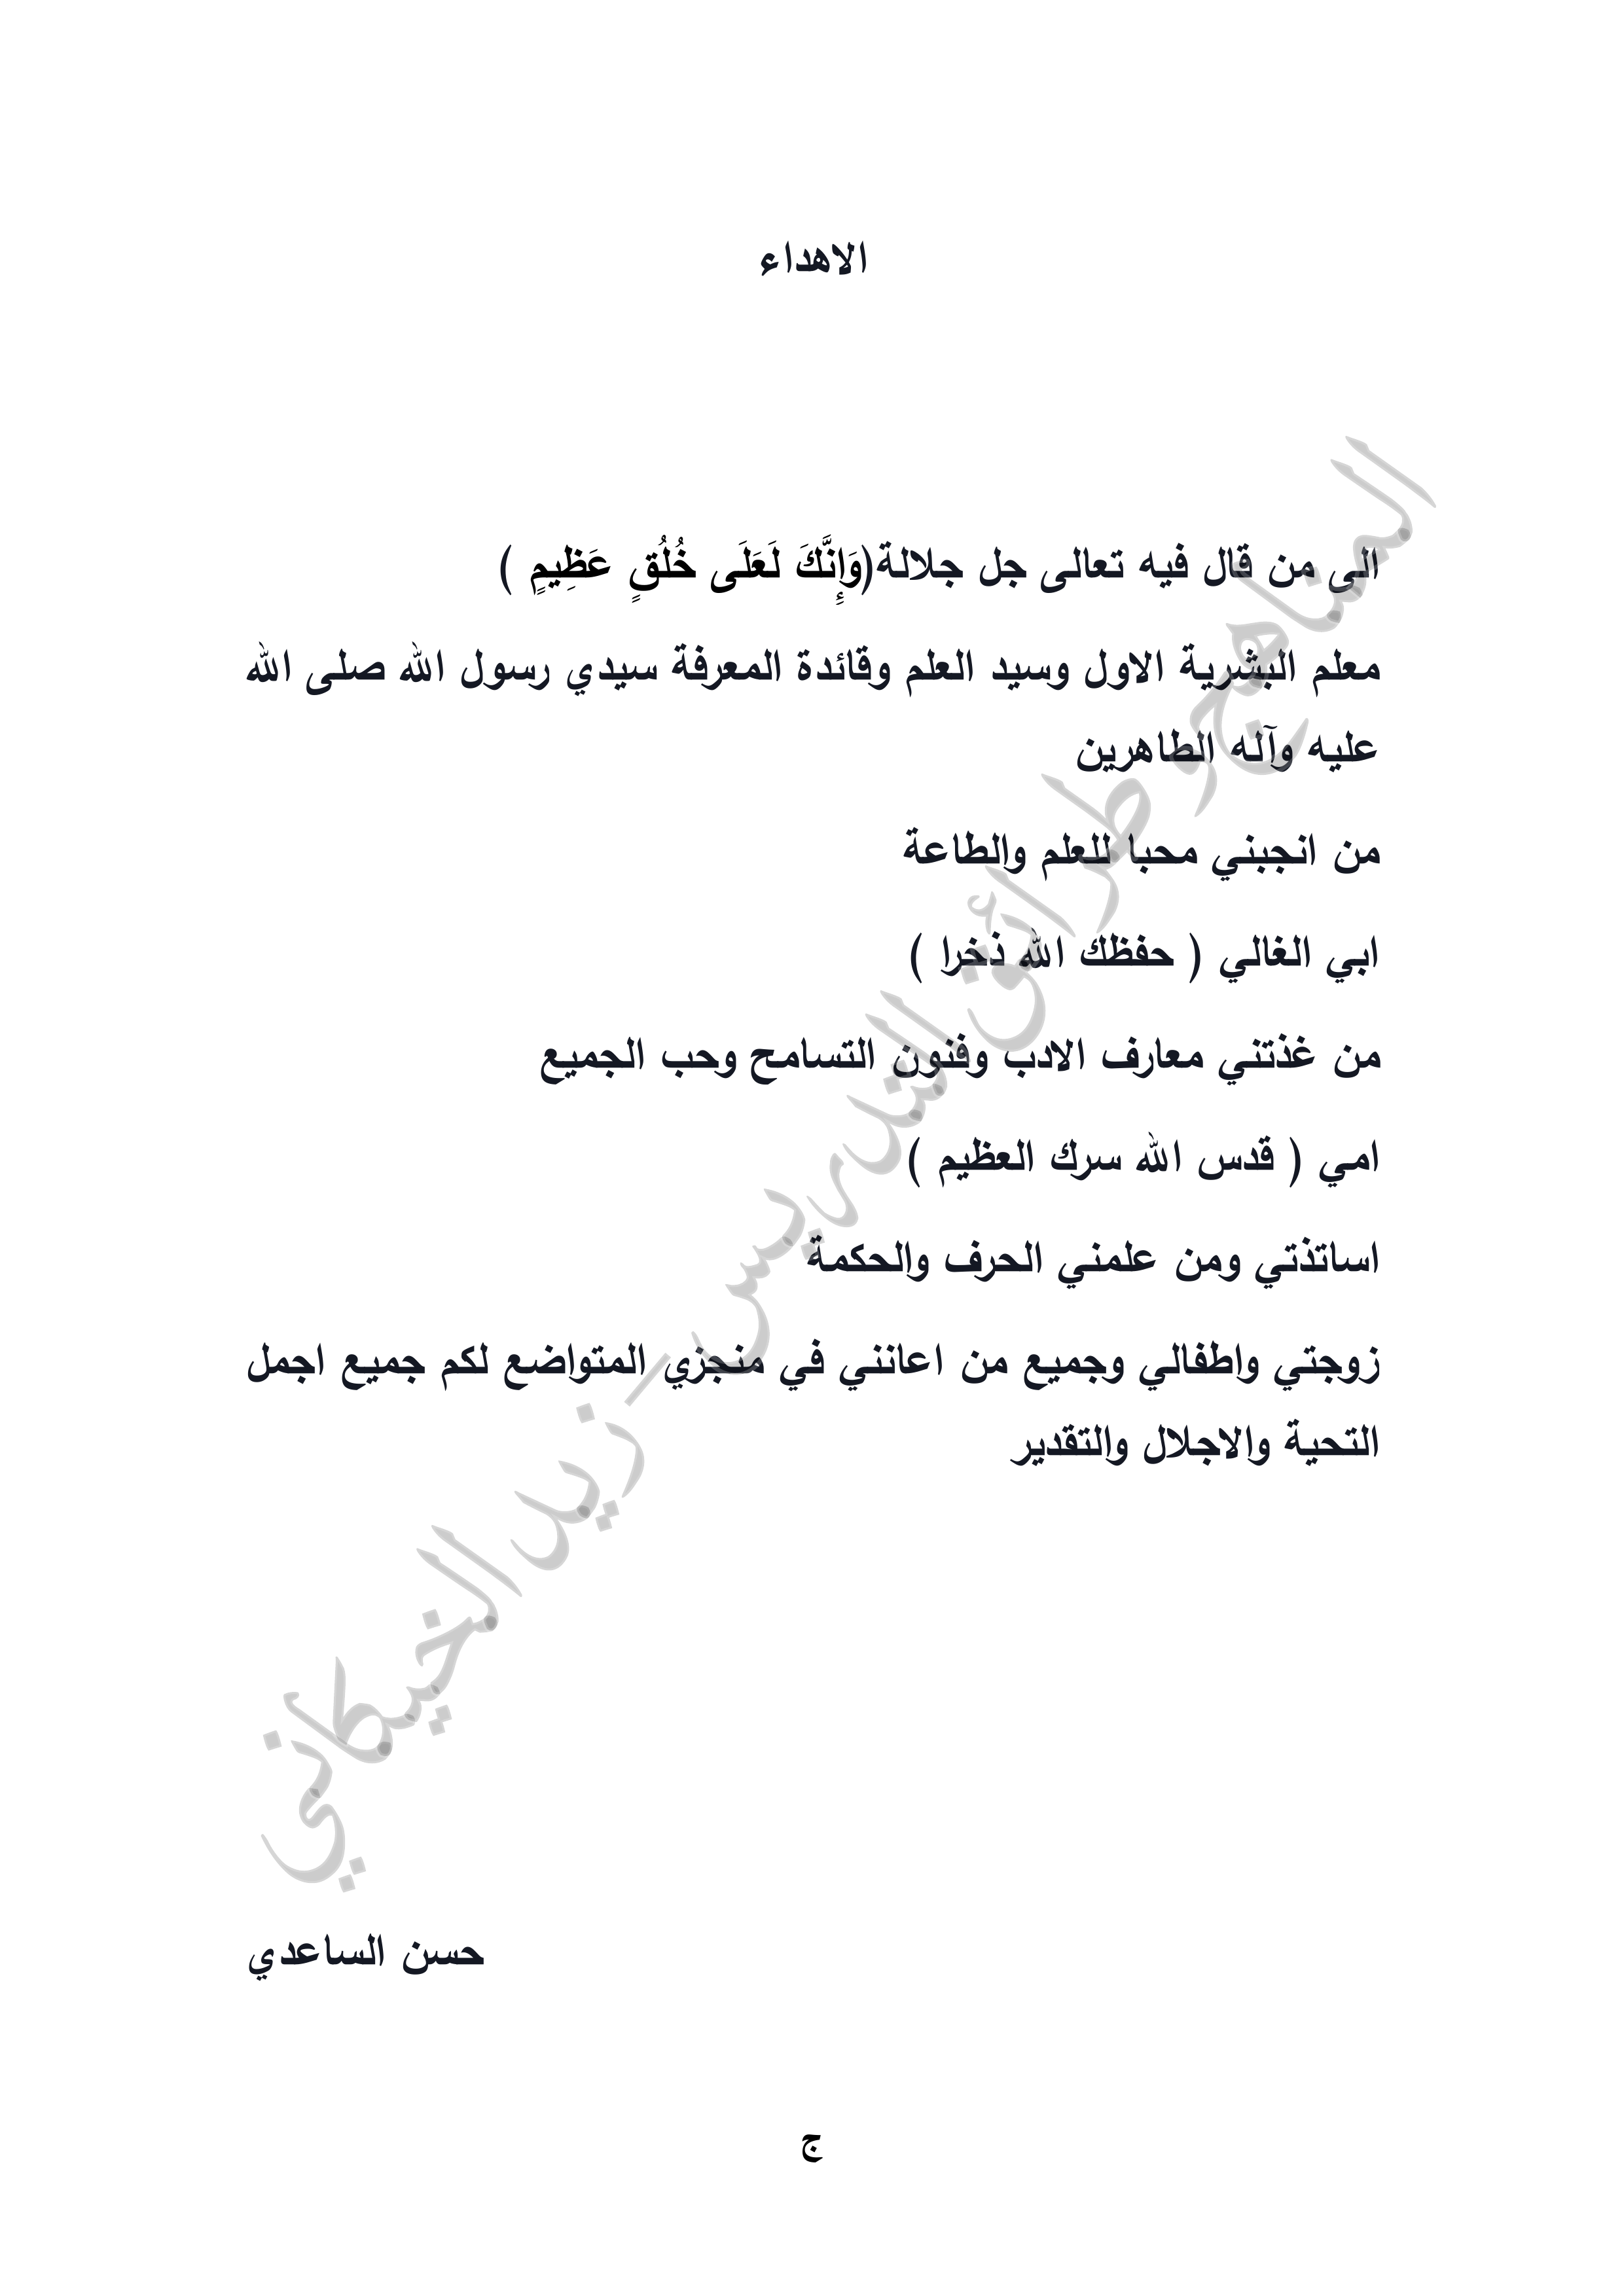 الاهداء
الى من قال فيه تعالى جل جلالة(وَإِنَّكَ لَعَلَى خُلُقٍ عَظِيمٍ )
معلم البشرية الاول وسيد العلم وقائدة المعرفة سيدي رسول الله صلى الله
عليه وآله الطاهرين
من انجبني محبا للعلم والطاعة
ابي الغالي ( حفظك الله ذخرا )
من غذتني معارف الادب وفنون التسامح وحب الجميع
امي ( قدس الله سرك العظيم )
اساتذتي ومن علمني الحرف والحكمة
زوجتي واطفالي وجميع من اعانني في منجزي المتواضع لكم جميع اجمل
التحية والاجلال والتقدير
المناهج و طرائق التدريس - زيد الخيكاني
حسن الساعدي
ج